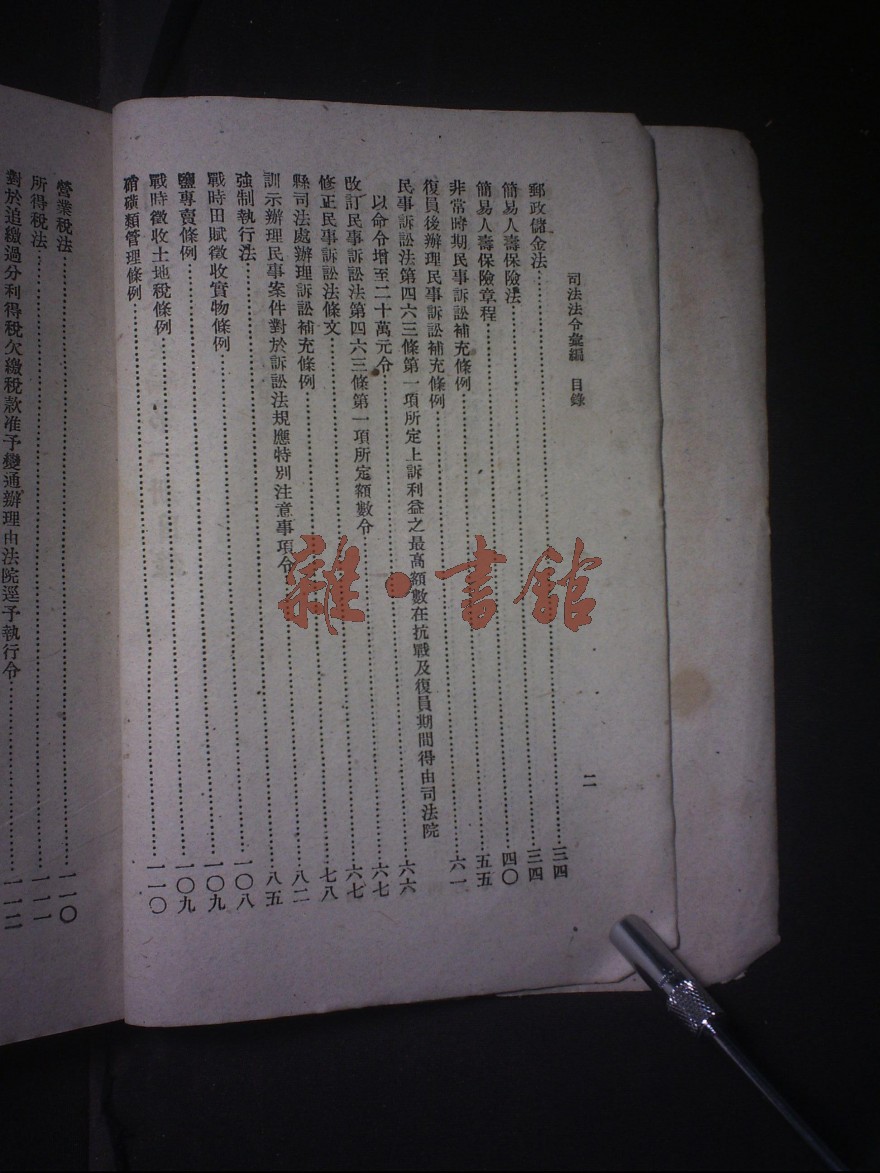 司法法令彙編 目錄 二
郵政儲金法……三四
簡易人壽保險法……三四
簡易人壽保險章程……四〇
非常時期民事訴訟補充條例……五五
復員後辦理民事訴訟補充條例……六一
民事訴訟法第四六三條第一項所定上訴利益之最高額數在抗戰及復員期間得由司法院
以命令增至二十萬元令……六六
改訂民事訴訟法第四六三條第一項所定額數令……六七
修正民事訴訟法條文……六七
縣司法處辦理訴訟補充條例……七八
訓示辦理民事案件對於訴訟法規應特別注意事項令……八二
強制執行法……八五
戰時田賦徵收實物條例……一〇八
鹽專賣條例……一〇九
戰時徵收土地稅條例……一〇九
硝磺類管理條例……一一〇
營業稅法……一一〇
所得稅法……一一一
對於追繳過分利得稅欠繳稅款准予變通辦理由法院逕予執行令……一一二
雜·書館